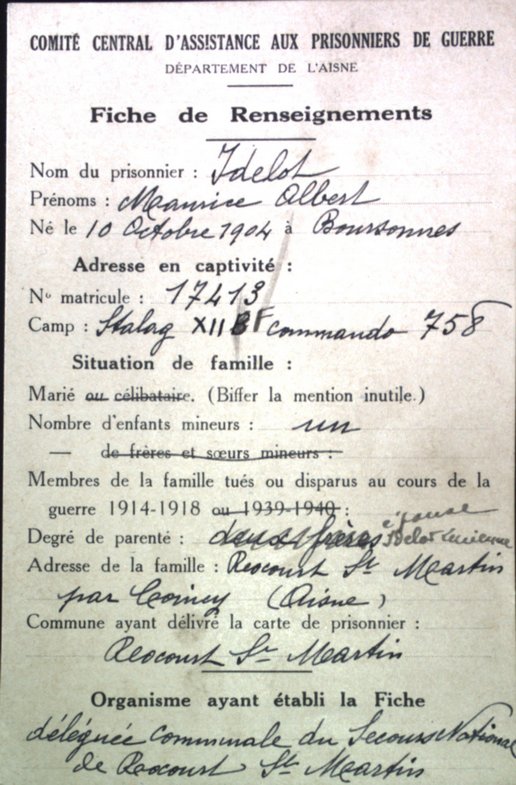 COMITÉ CENTRAL D'ASSISTANCE AUX PRISONNIERS DE GUERRE
DÉPARTEMENT DE L'AISNE
Fiche de Renseignements
Nom du prisonnier : Idelot
Prénoms : Maurice Albert
Né le 10 Octobre 1904 à Boursonnes
Adresse en captivité :
No matricule : 17413
Camp : Stalag XII F commando 758
Situation de famille :
Marié ou célibataire. (Biffer la mention inutile.)
Nombre d'enfants mineurs : un
— de frères et sœurs mineurs :
Membres de la famille tués ou disparus au cours de la
guerre 1914-1918 ou 1939-1940 :
épouse
Degré de parenté : deux frères Idelot Lucienne
Adresse de la famille : Rocourt St Martin
par Coincy (Aisne)
Commune ayant délivré la carte de prisonnier :
Rocourt St Martin
Organisme ayant établi la Fiche
déléguée communale du Secours National
de Rocourt St Martin